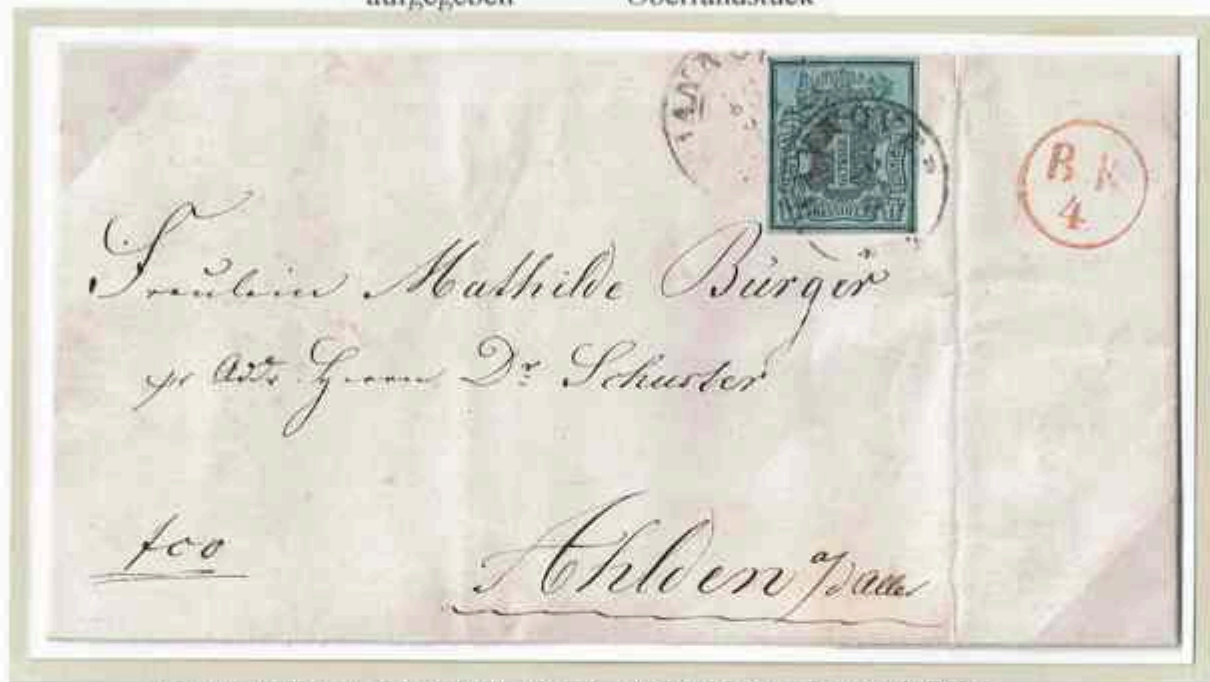 aufgegeben Oberrandstück
HANNOV
1
B K
4
Fräulein Mathilde Bürger
pr Addr Herrn Dr Schuster
fco
Ahlden a/d Aller